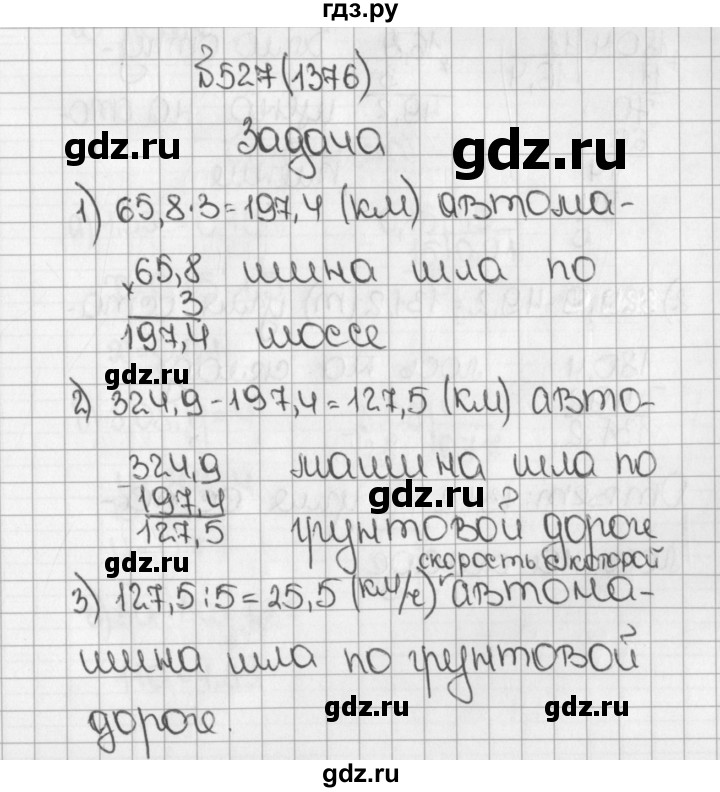 гдз.ру
№527(1376)
Задача
gdz.ru gdz.ru
1) 65,8·3=197,4 (км) автома-
×65,8 шина шла по
3
197,4 шоссе
gdz.ru
2) 324,9-197,4=127,5 (км) авто-
324,9 машина шла по
197,4
gdz.ru
127,5 грунтовой дороге
gdz.ru скорость с которой
3) 127,5:5=25,5 (км/ч) автома-
шина шла по грунтовой
gdz.ru gdz.ru
дороге.
gdz.ru